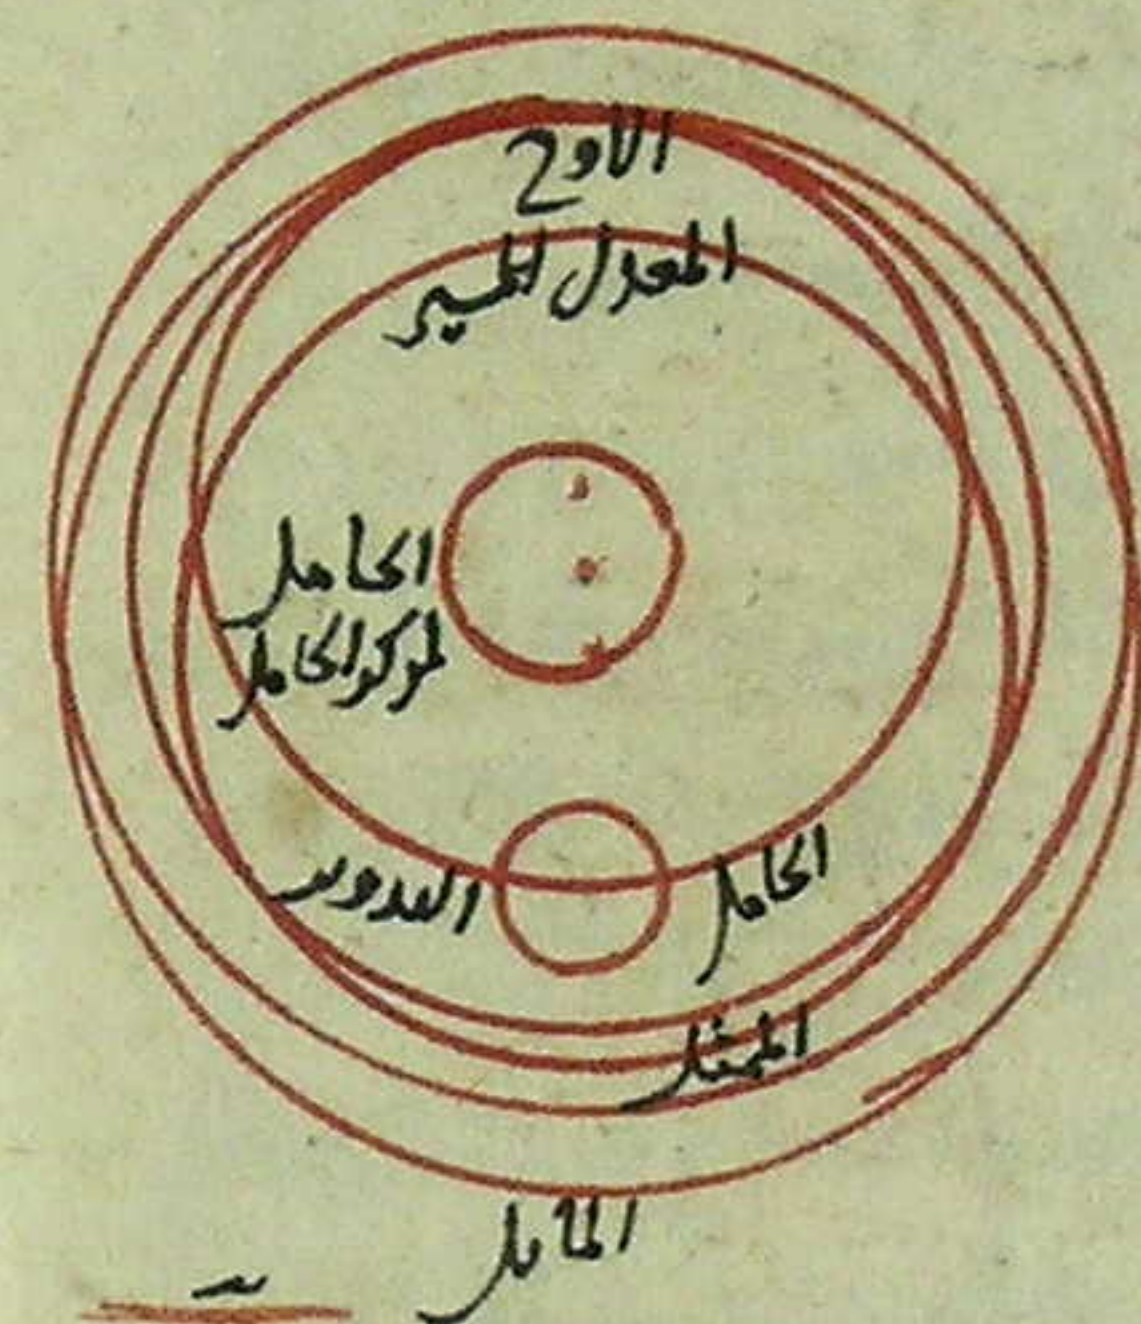 الاوج
المعدل للمسير
الحامل
لمركز الحامل
التدوير
الحامل
الممثل
المايل